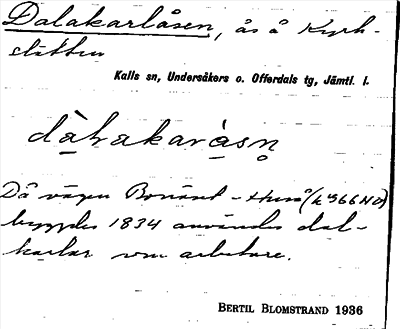 Dalakarlåsen, ås å Kyrk-
slätten
Kalls sn, Undersåkers o. Offerdals tg, Jämtl. l.
dàlrakaråsn̥
Då vägen Bonäset - Huså (k 966 NO)
byggdes 1834 användes dal-
karlar som arbetare.
BERTIL BLOMSTRAND 1936